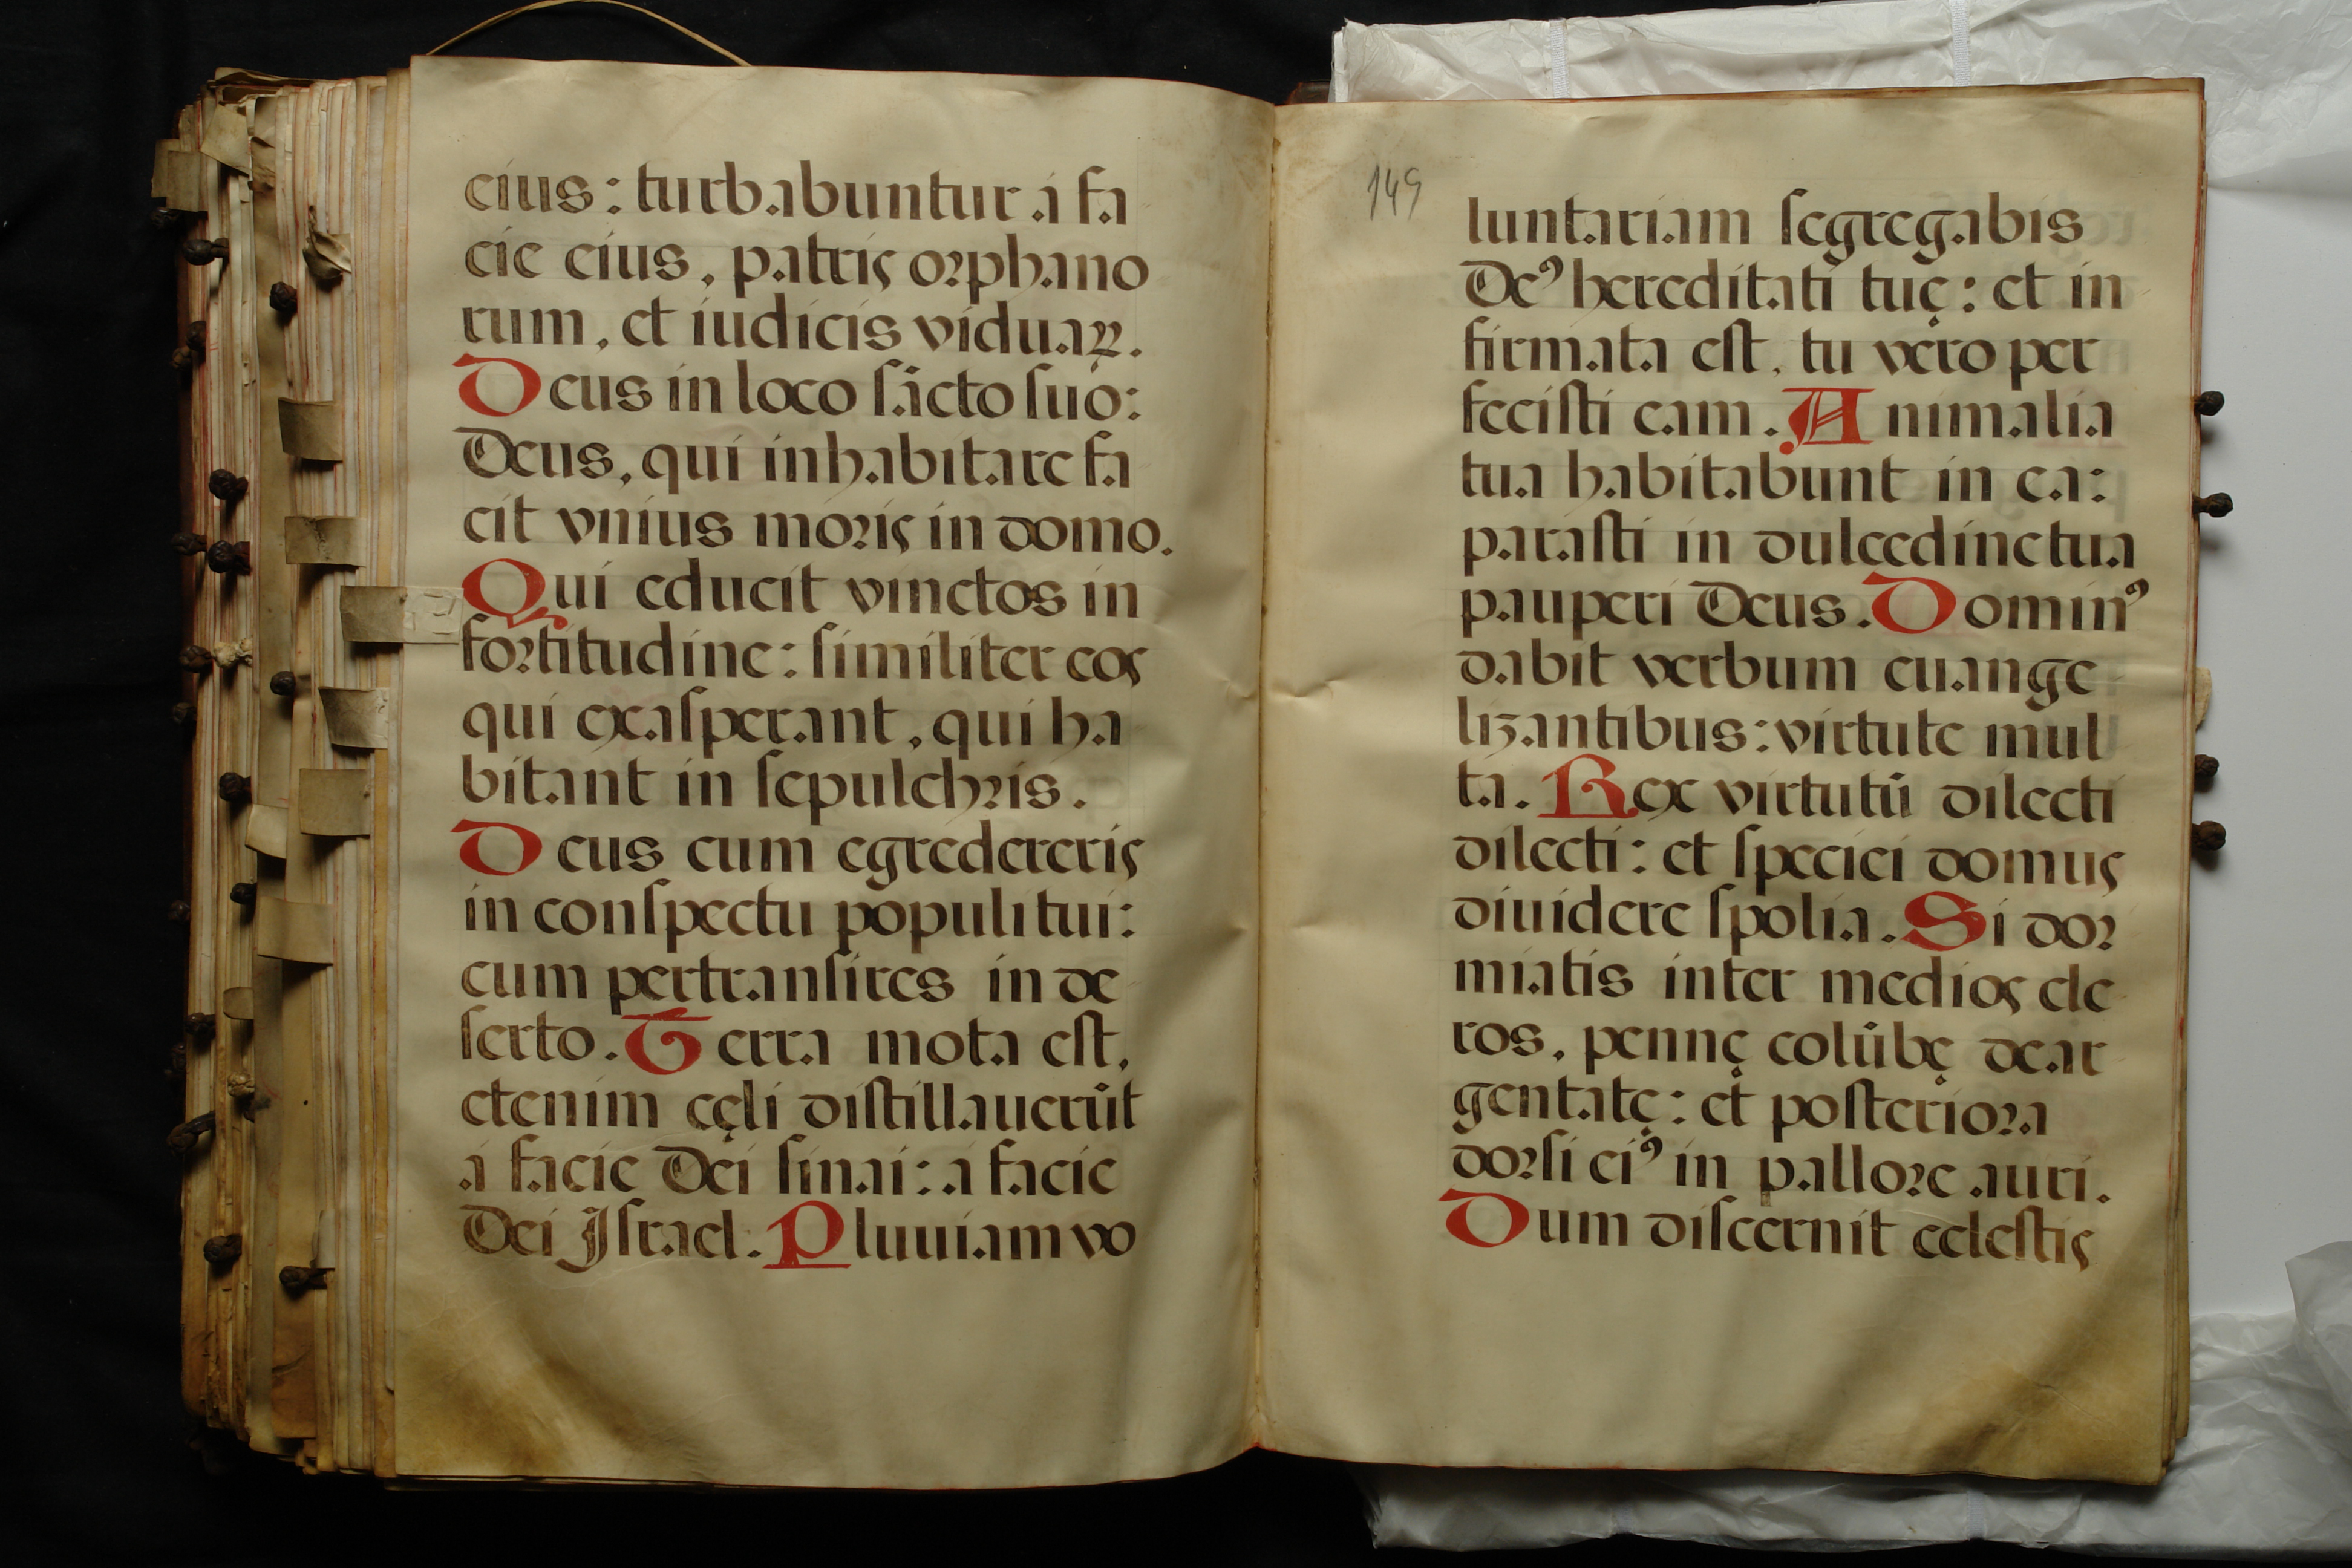 eius: turbabuntur á fa
cie eius, patris orphano
rum, et iudicis viduaꝝ.
Deus in loco sãcto suo:
Deus, qui inhabitare fa
cit vnius moris in domo.
Qui educit vinctos in
fortitudine: similiter eos
qui exasperant, qui ha
bitant in sepulchris.
Deus cum egredereris
in conspectu populi tui:
cum pertransires in de
serto. Terra mota est,
etenim cęli distillauerũt
a facie Dei sinai: a facie
Dei Israel. Pluuiam vo
149
luntariam segregabis
Deꝰ hereditati tuę: et in
firmata est, tu vero per
fecisti eam. Animalia
tua habitabunt in ea:
parasti in dulcedine tua
pauperi Deus. Dominꝰ
dabit verbum euange
lizantibus: virtute mul
ta. Rex virtutũ dilecti
dilecti: et speciei domus
diuidere spolia. Si dor
miatis inter medios cle
ros, pennę colũbę dear
gentatę: et posteriora
dorsi eiꝰ in pallore auri.
Dum discernit celestis